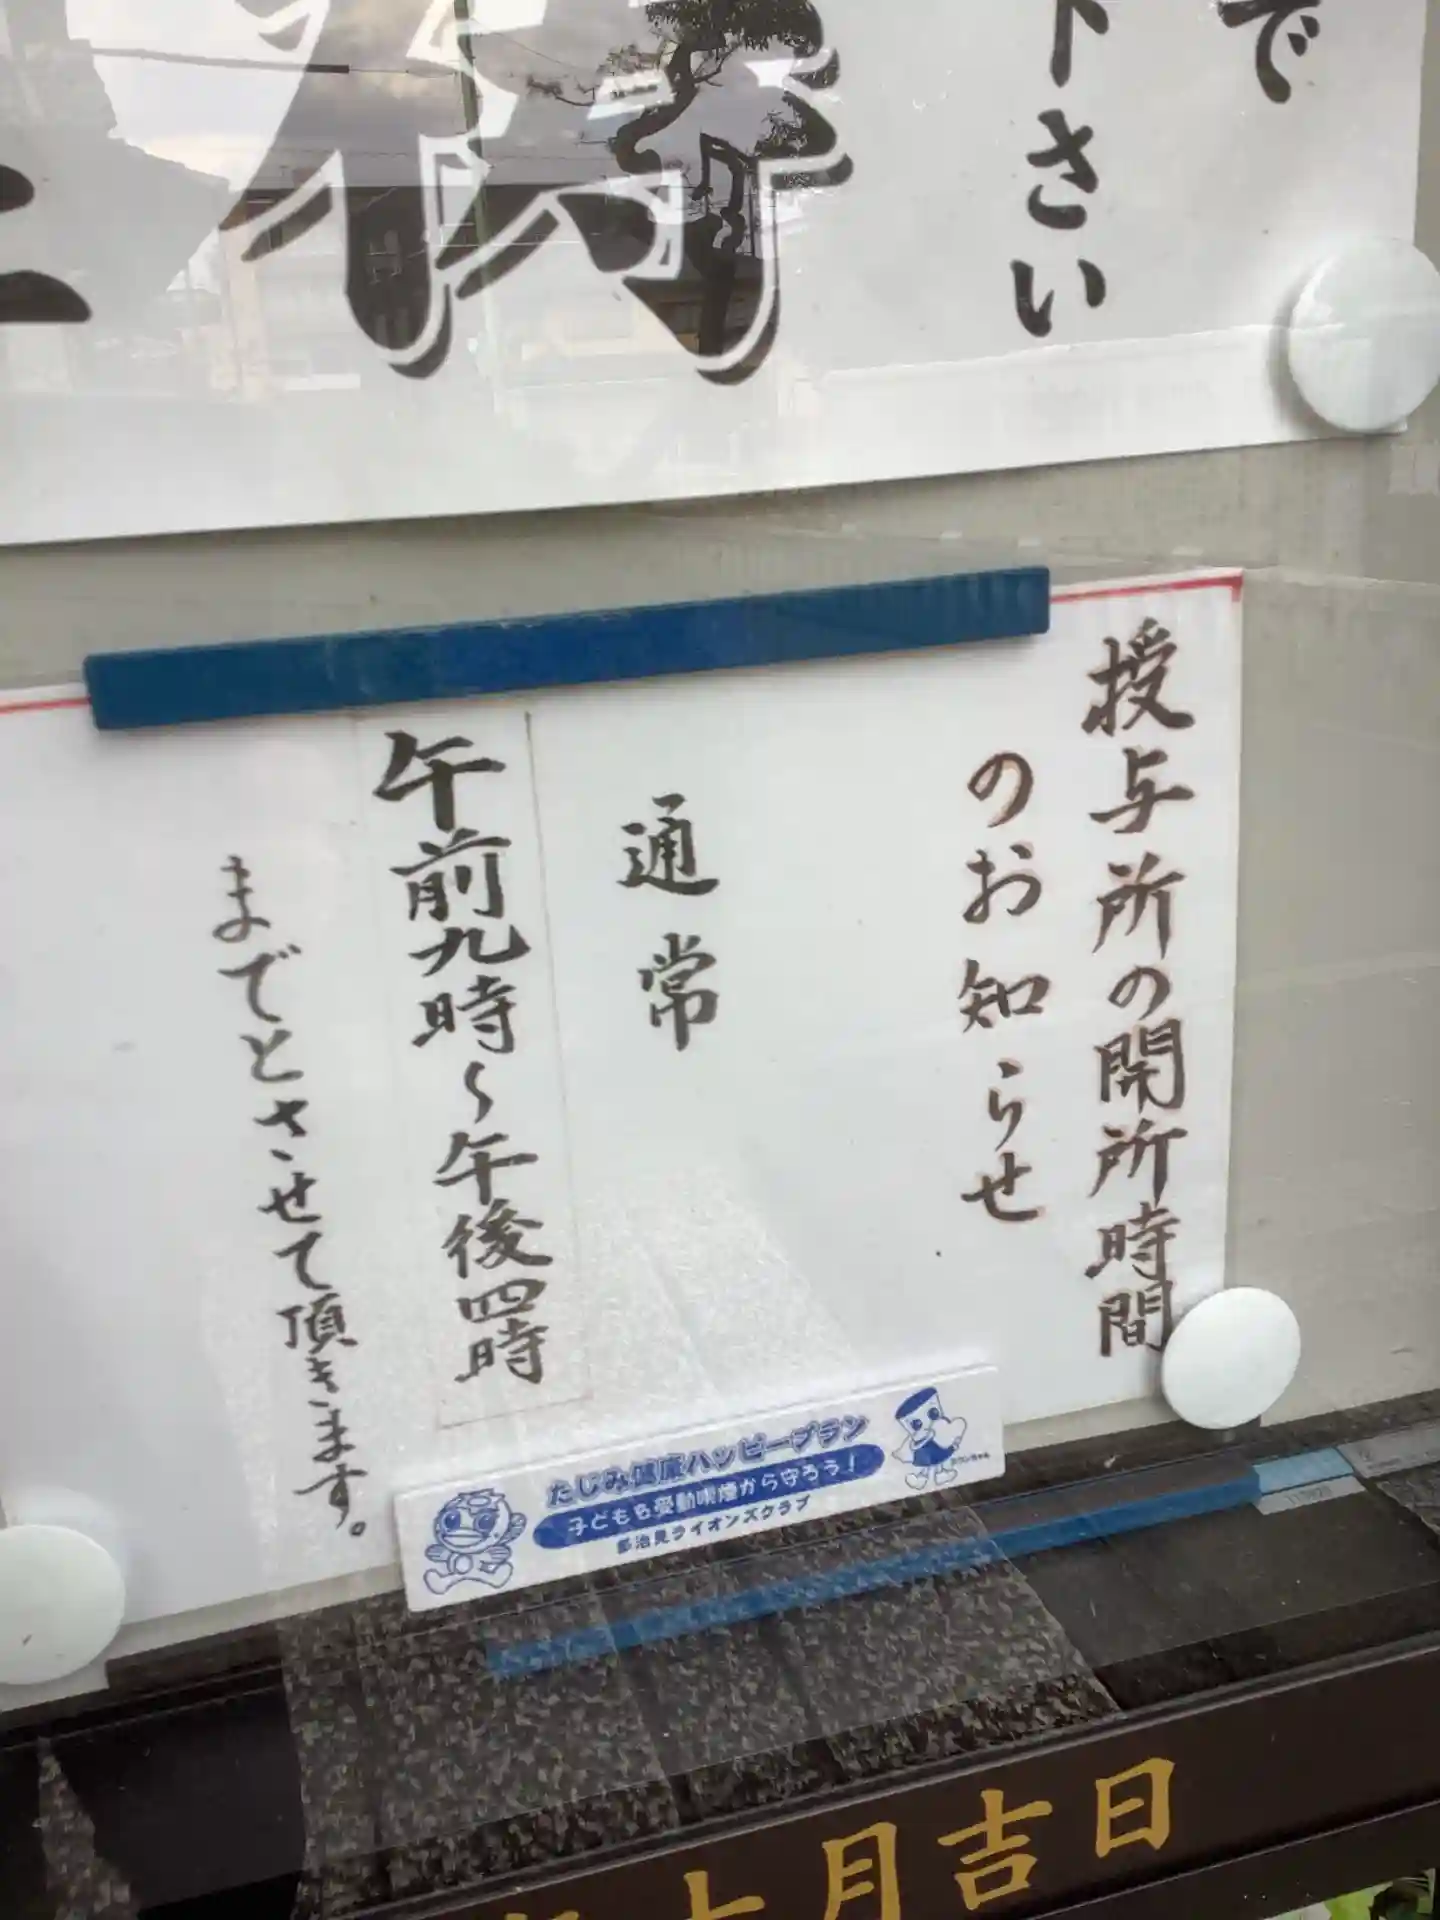 で
下さい
授与所の開所時間
のお知らせ
通常
午前九時〜午後四時
までとさせて頂きます。
たじみ健康ハッピープラン
子どもを受動喫煙から守ろう！
多治見ライオンズクラブ
月吉日